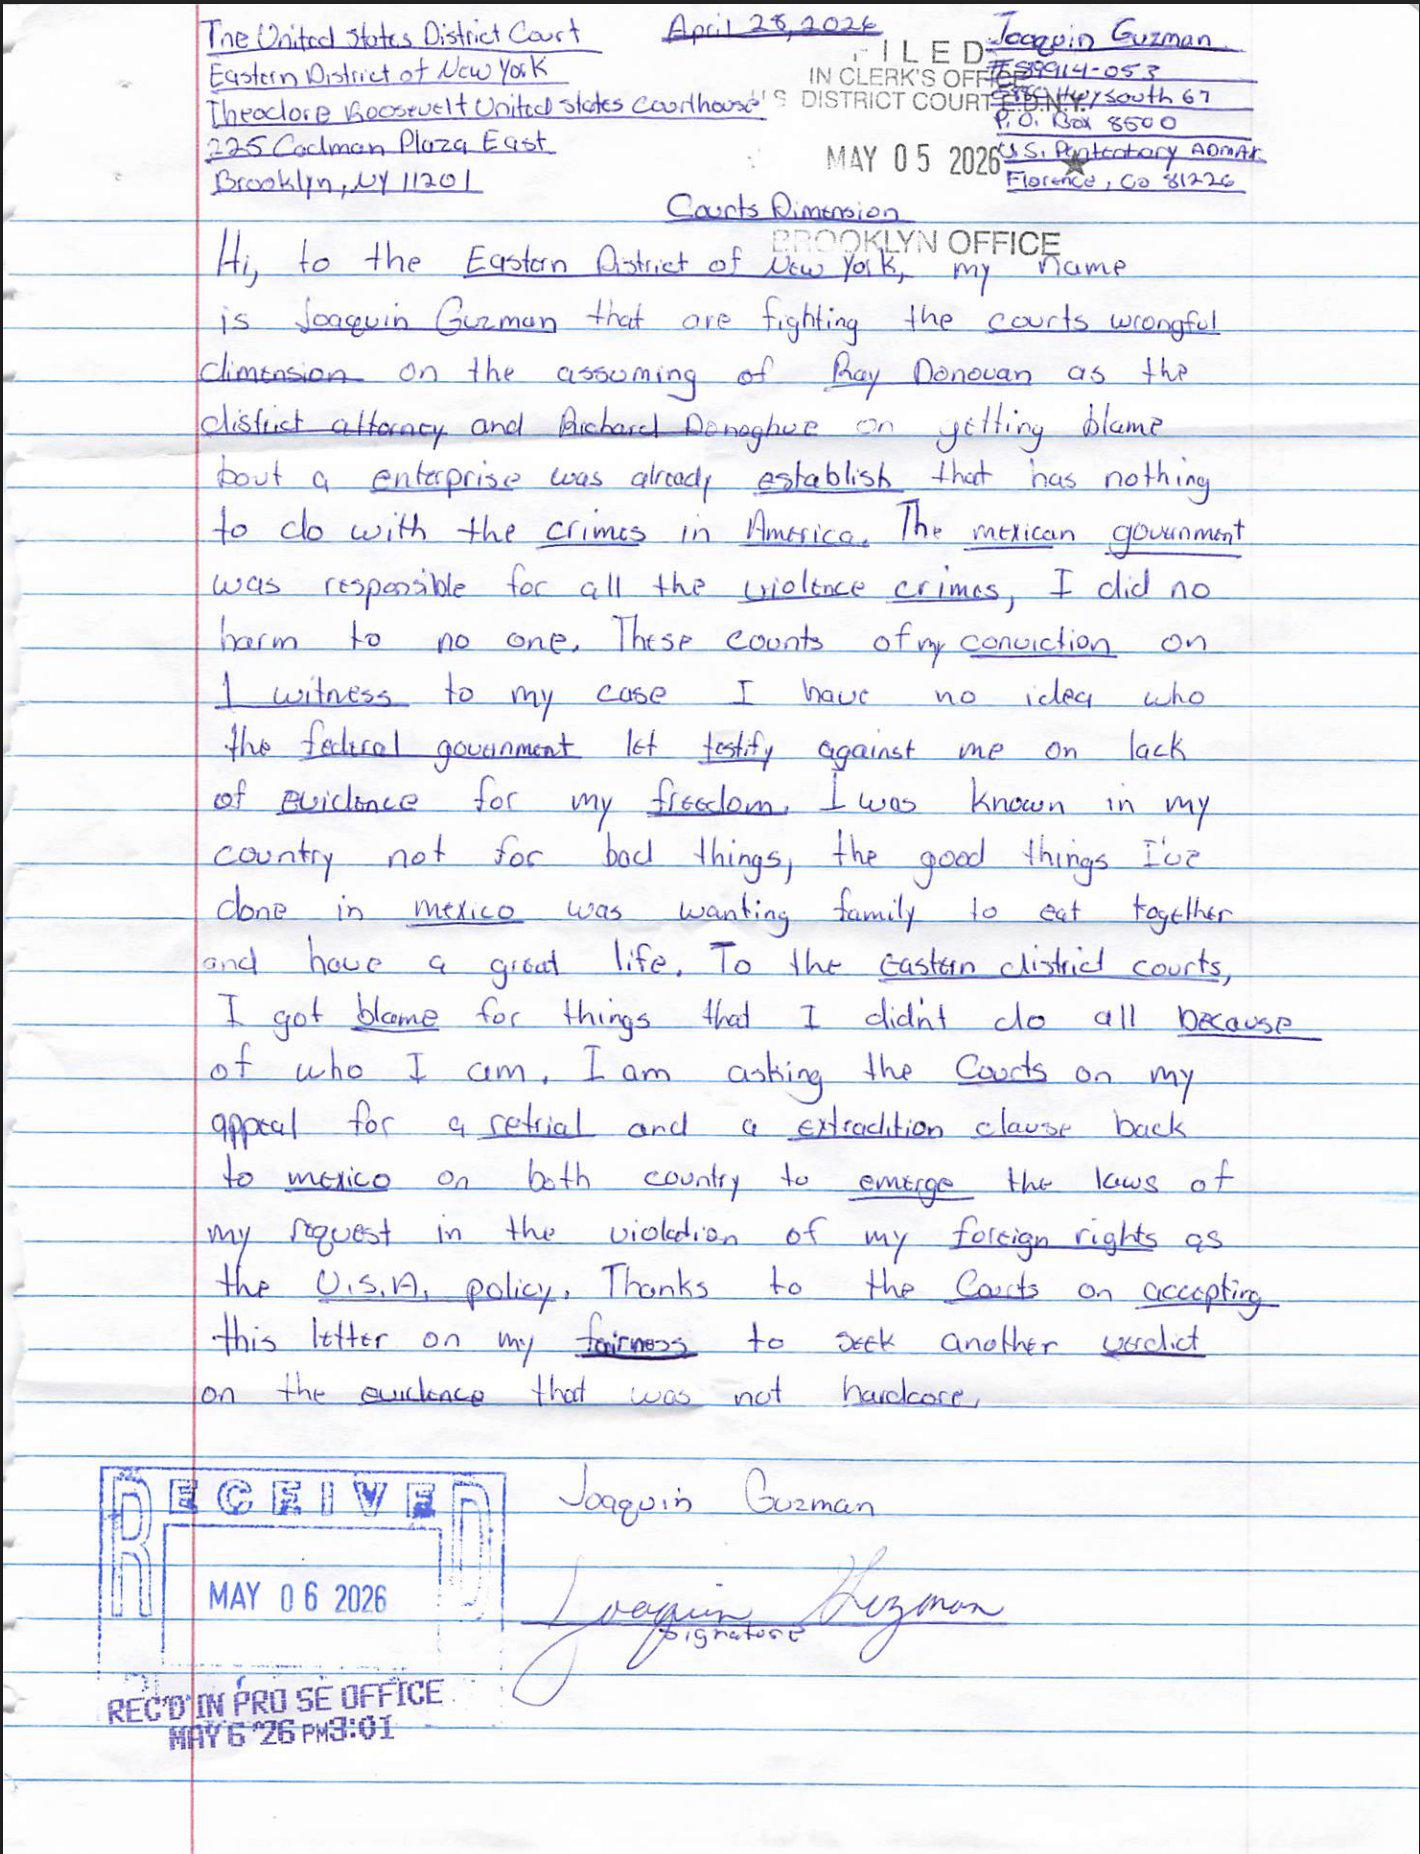 The United States District Court
Eastern District of New York
Theodore Roosevelt United States Courthouse
225 Cadman Plaza East
Brooklyn, NY 11201
April 28, 2026
FILED
IN CLERK'S OFFICE
U S DISTRICT COURT E.D.N.Y.
MAY 05 2026 ★
BROOKLYN OFFICE
Joaquin Guzman
#89914-053
Hwy South 67
P.O. Box 8500
U.S. Penitentiary ADMAX
Florence, Co 81226
Courts Dimension
Hi, to the Eastern District of New York, my name
is Joaquin Guzman that are fighting the courts wrongful
dimension on the assuming of Ray Donovan as the
district attorney and Richard Donoghue on getting blame
bout a enterprise was already establish that has nothing
to do with the crimes in America. The mexican government
was responsible for all the violence crimes, I did no
harm to no one. These counts of my conviction on
1 witness to my case I have no idea who
the federal government let testify against me on lack
of evidence for my freedom. I was known in my
country not for bad things, the good things I've
done in mexico was wanting family to eat together
and have a great life. To the eastern district courts,
I got blame for things that I didn't do all because
of who I am. I am asking the Courts on my
appeal for a retrial and a extradition clause back
to mexico on both country to emerge the laws of
my request in the violation of my foreign rights as
the U.S.A. policy. Thanks to the Courts on accepting
this letter on my fairness to seek another verdict
on the evidence that was not hardcore.
Joaquin Guzman
Joaquin Guzman
signature
RECEIVED
MAY 06 2026
REC'D IN PRO SE OFFICE
MAY 6 '26 PM3:01